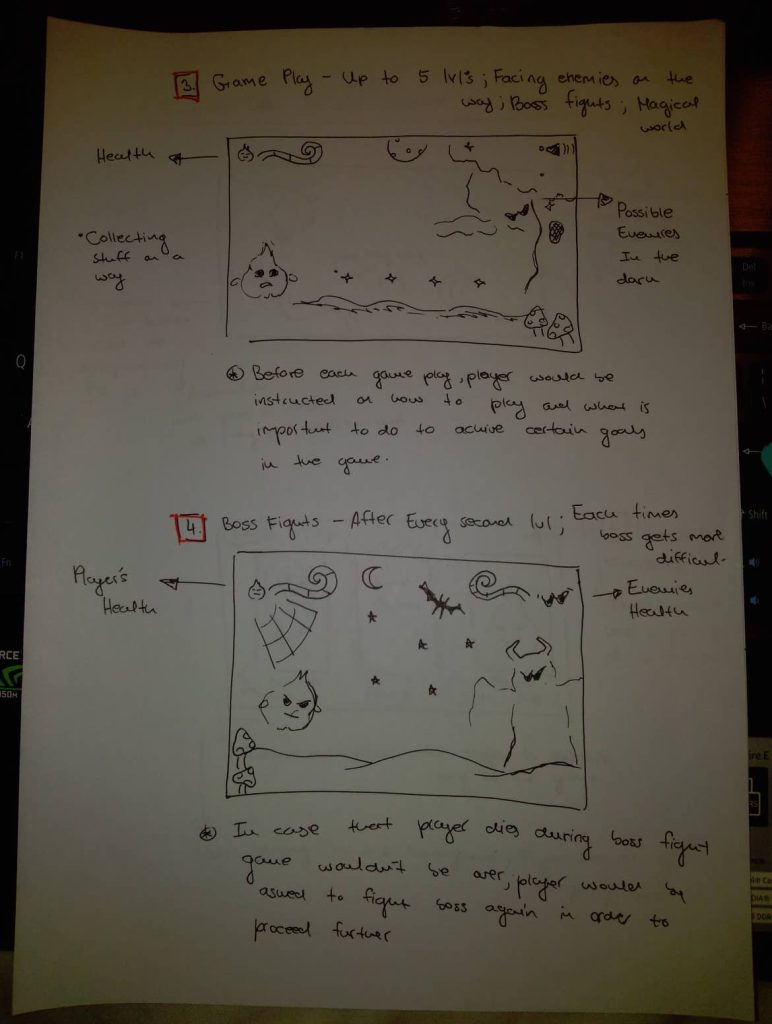 3. Game Play - Up to 5 lvl's; Facing enemies on the
way; Boss fights; Magical
world
Health
Possible
Enemies
In the
dark
*Collecting
stuff on a
way
* Before each game play, player would be
instructed on how to play and what is
important to do to achive certain goals
in the game.
4. Boss Fights - After Every second lvl; Each times
boss gets more
difficult.
Player's
Health
Enemies
Health
* In case that player dies during boss fight
game wouldn't be over, player would be
asked to fight boss again in order to
proceed further
Q
Fn
RCE
050M
Del
Ins
Shift